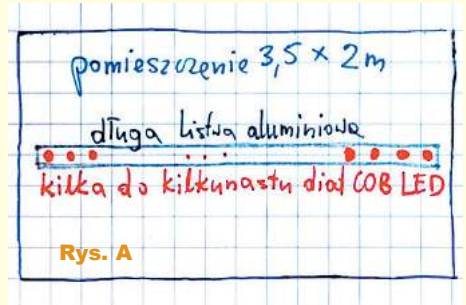 pomieszczenie 3,5 × 2 m
długa listwa aluminiowa
kilka do kilkunastu diod COB LED
Rys. A